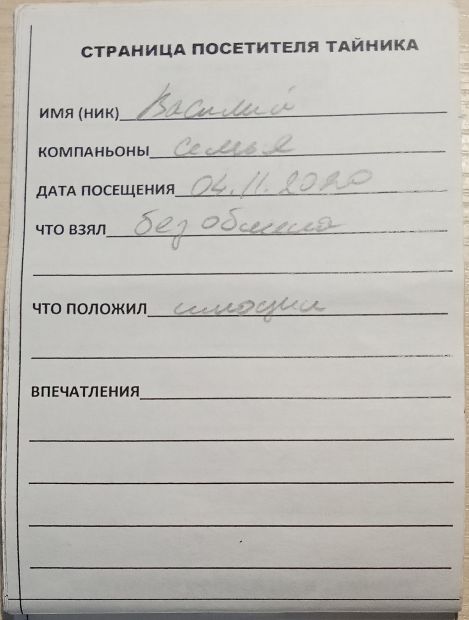 СТРАНИЦА ПОСЕТИТЕЛЯ ТАЙНИКА
ИМЯ (НИК) Василий
КОМПАНЬОНЫ семья
ДАТА ПОСЕЩЕНИЯ 04.11.2020
ЧТО ВЗЯЛ без обмена
ЧТО ПОЛОЖИЛ
ВПЕЧАТЛЕНИЯ